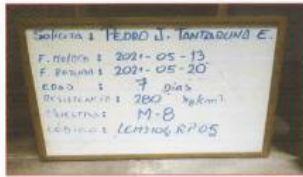 Solicita : PEDRO J. TANTARUNA E.
F. MOLDEO : 2021-05-13
F. ROTURA : 2021-05-20
EDAD : 7 Dias
RESISTENCIA : 280 kg/cm²
MUESTRA : M-8
CÓDIGO :